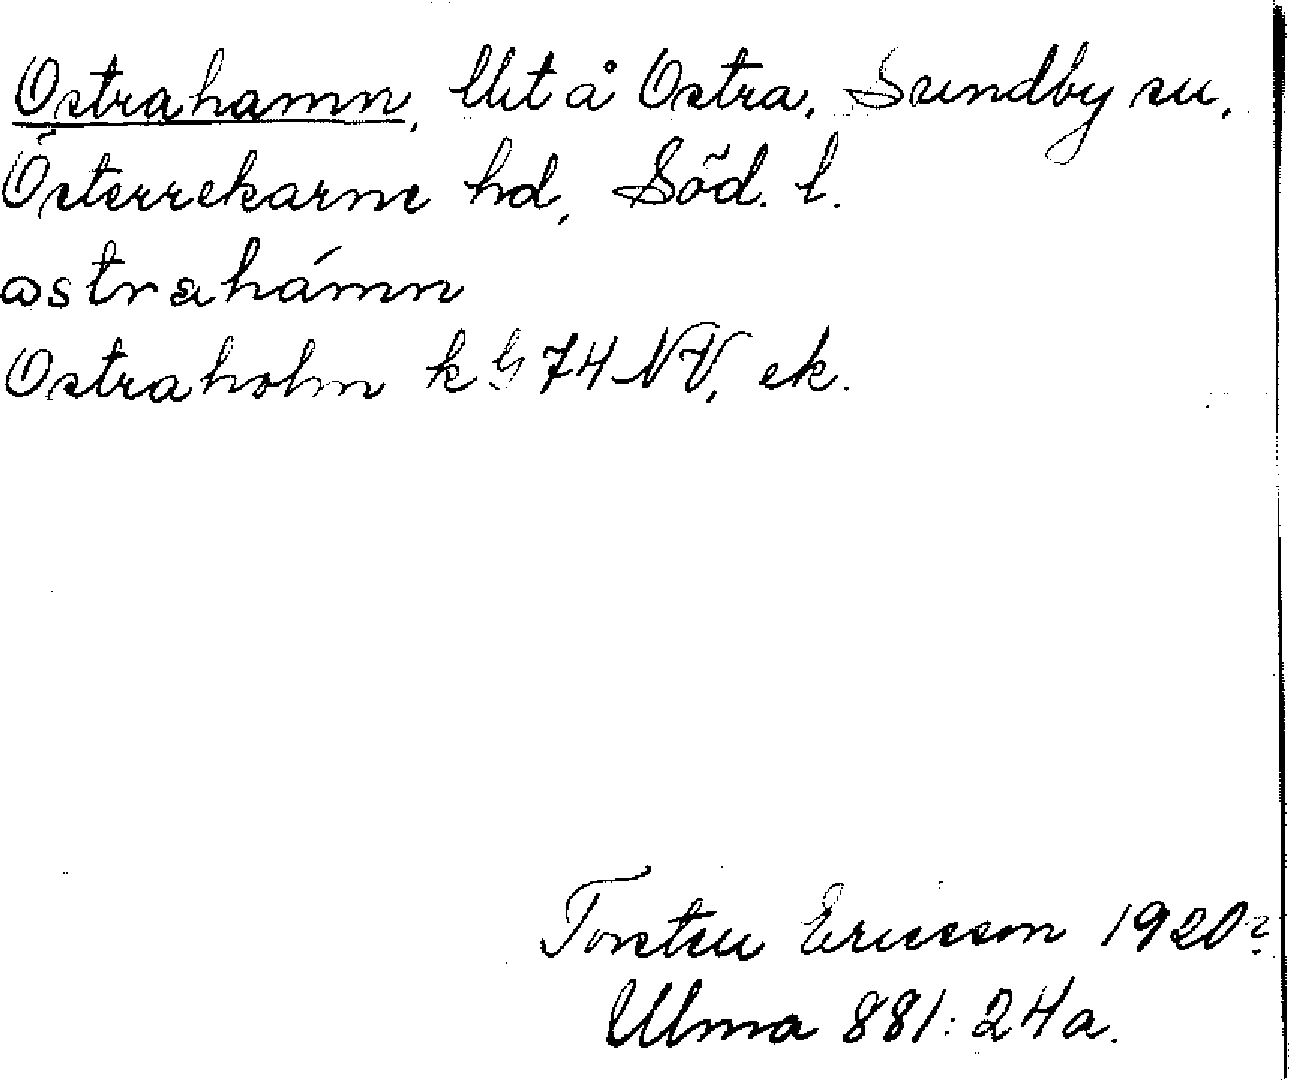 Ostrahamn, Ut å Ostra, Sundby sn,
Österrekarne hd, Söd. l.
ostrahámn
Ostraholm k G 74 NV, ek.
Torsten Ericsson 1920?
Ulma 881:24a.